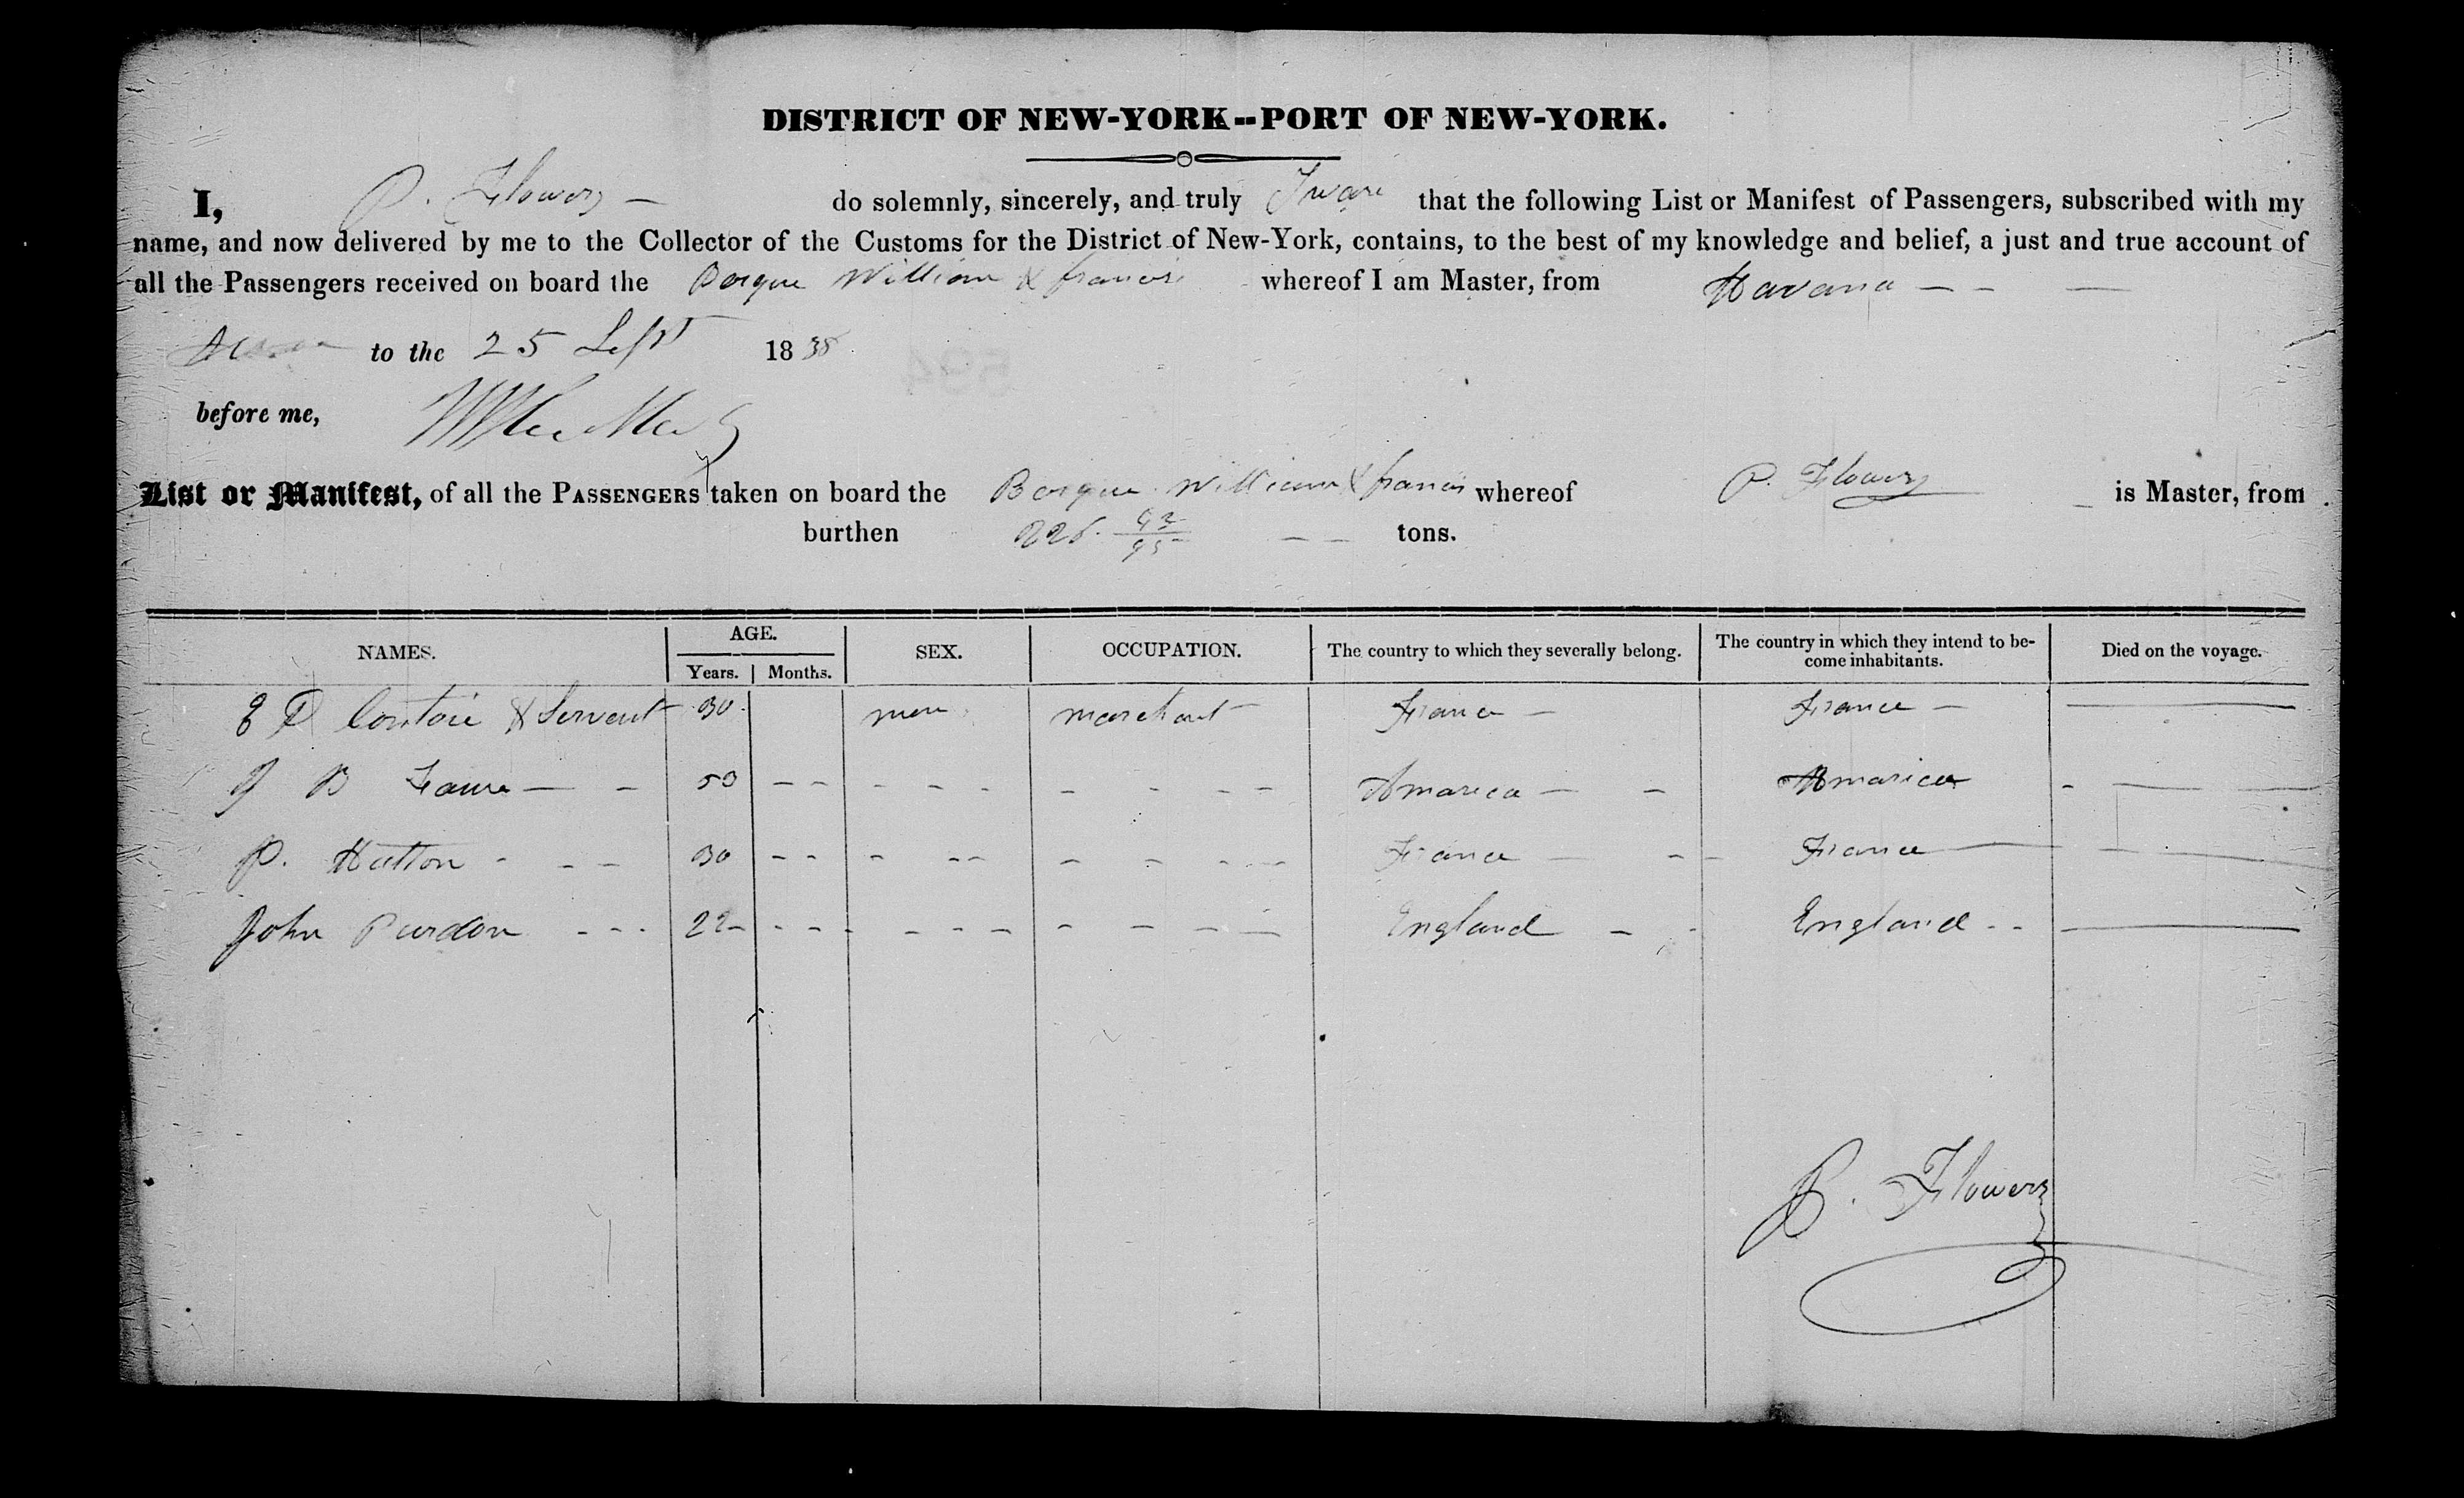 DISTRICT OF NEW-YORK--PORT OF NEW-YORK.
I, P. Flowers — do solemnly, sincerely, and truly Sware that the following List or Manifest of Passengers, subscribed with my
name, and now delivered by me to the Collector of the Customs for the District of New-York, contains, to the best of my knowledge and belief, a just and true account of
all the Passengers received on board the Barque William & francis whereof I am Master, from Havana — — —
to the 25 Sept 1838
before me,
List or Manifest, of all the PASSENGERS taken on board the Barque William & francis whereof P. Flowers is Master, from
burthen tons.
NAMES. AGE. SEX. OCCUPATION. The country to which they severally belong. The country in which they intend to be- Died on the voyage.
Years. Months. come inhabitants.
& Servant 30 men marchant — France — France —
J B 53 - - - - - - - - - - America — - America - —
P. Hutton - - - 30 - - - - - - - - - France — - - France —
John Purdon - - - 22 - - - - - - - - - - - England - - England - - —
P. Flowers